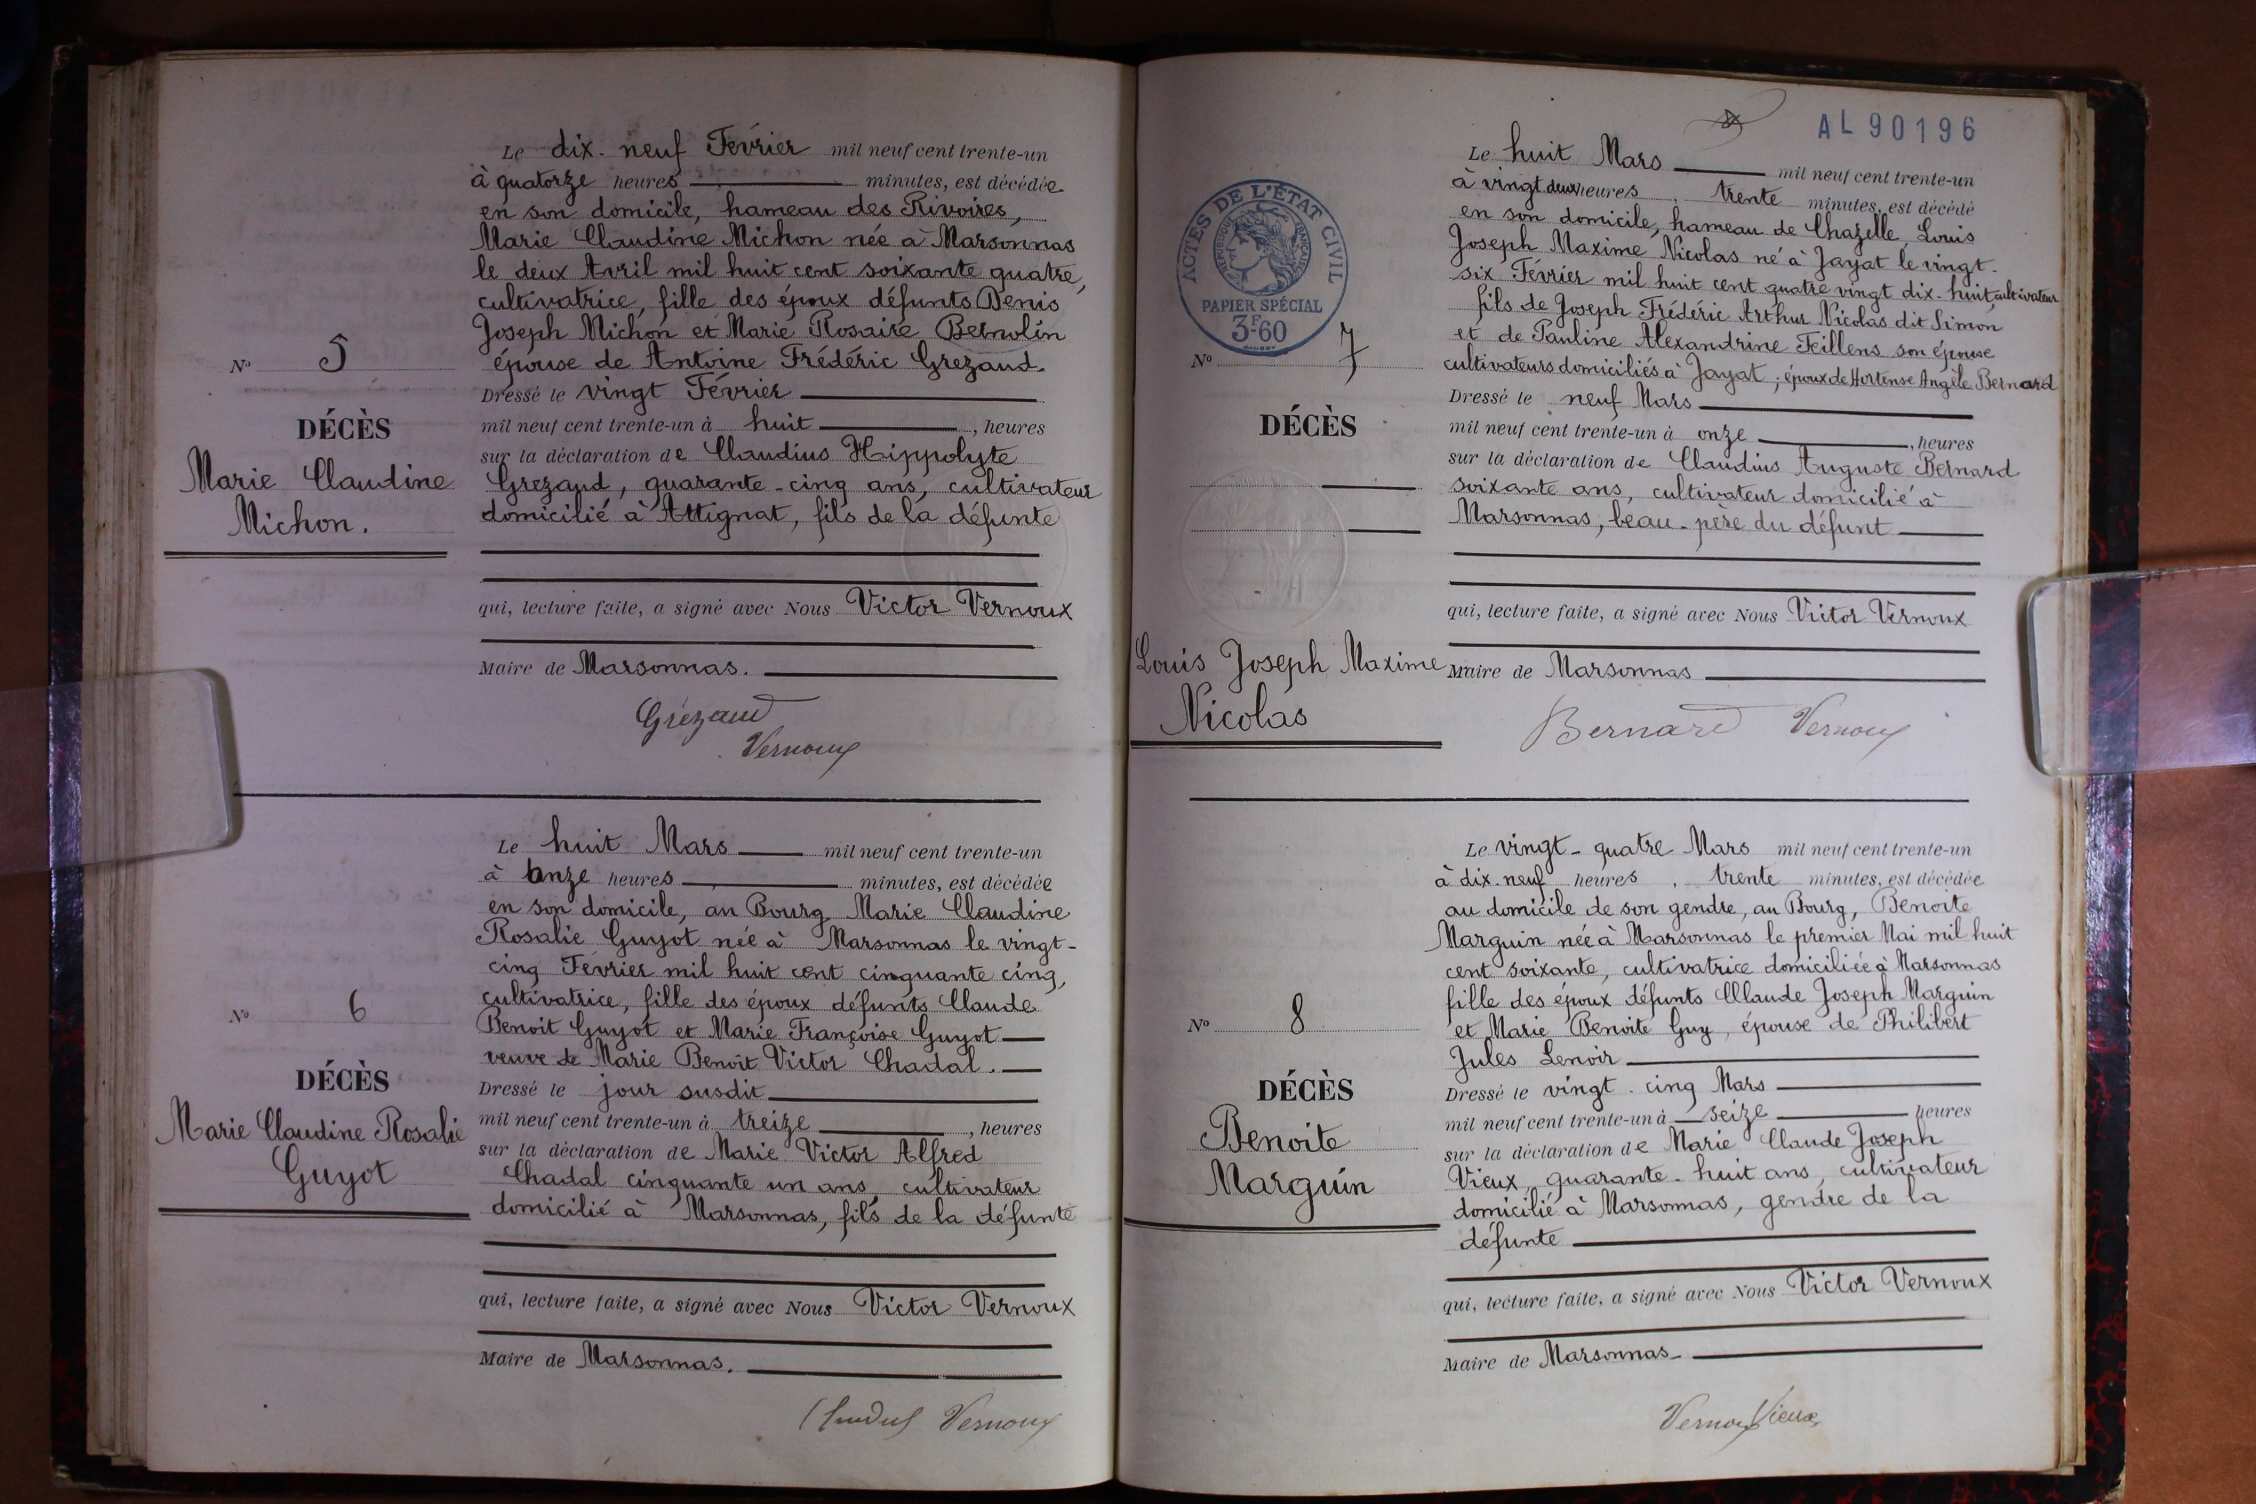 Le dix-neuf Février mil neuf cent trente-un
à quatorze heures minutes, est décédée
en son domicile, hameau des Rivoires,
Marie Claudine Michon née à Marsonnas
le deux Avril mil huit cent soixante quatre,
cultivatrice, fille des époux défunts Denis
Joseph Michon et Marie Rosaire Bernolin
épouse de Antoine Frédéric Grezaud.
N° 5
Dressé le vingt Février
DÉCÈS
mil neuf cent trente-un à huit, heures
sur la déclaration de Claudius Hippolyte
Marie Claudine
Grezaud, quarante-cinq ans, cultivateur
Michon.
domicilié à Attignat, fils de la défunte
qui, lecture faite, a signé avec Nous Victor Vernoux
Maire de Marsonnas.
Grézaud
Vernoux
Le huit Mars mil neuf cent trente-un
à onze heures minutes, est décédée
en son domicile, au Bourg Marie Claudine
Rosalie Guyot née à Marsonnas le vingt-
cinq Février mil huit cent cinquante cinq,
cultivatrice, fille des époux défunts Claude
Benoit Guyot et Marie Françoise Guyot
N° 6
veuve de Marie Benoît Victor Chadal.
DÉCÈS
Dressé le jour susdit
mil neuf cent trente-un à treize, heures
Marie Claudine Rosalie
sur la déclaration de Marie Victor Alfred
Guyot
Chadal cinquante un ans, cultivateur
domicilié à Marsonnas, fils de la défunte
qui, lecture faite, a signé avec Nous Victor Vernoux
Maire de Marsonnas.
Vernoux
AL 90196
ACTES DE L'ÉTAT CIVIL
RÉPUBLIQUE FRANÇAISE
PAPIER SPÉCIAL
3F-60
Le huit Mars mil neuf cent trente-un
à vingt deux heures, trente minutes, est décédé
en son domicile, hameau de Chazelle, Louis
Joseph Maxime Nicolas né à Jayat le vingt-
six Février mil huit cent quatre vingt dix-huit, cultivateur
fils de Joseph Frédéric Arthur Nicolas dit Simon
et de Pauline Alexandrine Feillens son épouse
N° 7
cultivateurs domiciliés à Jayat; époux de Hortense Angèle Bernard
Dressé le neuf Mars
DÉCÈS
mil neuf cent trente-un à onze, heures
sur la déclaration de Claudius Auguste Bernard
soixante ans, cultivateur domicilié à
Marsonnas, beau-père du défunt
qui, lecture faite, a signé avec Nous Victor Vernoux
Louis Joseph Maxime
Nicolas
Maire de Marsonnas
Bernard Vernoux
Le vingt-quatre Mars mil neuf cent trente-un
à dix-neuf heures, trente minutes, est décédée
au domicile de son gendre, au Bourg, Benoite
Marguin née à Marsonnas le premier Mai mil huit
cent soixante, cultivatrice domiciliée à Marsonnas
fille des époux défunts Claude Joseph Marguin
et Marie Benoite Guy, épouse de Philibert
Jules Lenoir
N° 8
DÉCÈS
Dressé le vingt-cinq Mars
mil neuf cent trente-un à seize heures
Benoite
Marguin
sur la déclaration de Marie Claude Joseph
Vieux, quarante-huit ans, cultivateur
domicilié à Marsonnas, gendre de la
défunte
qui, lecture faite, a signé avec Nous Victor Vernoux
Maire de Marsonnas
Vernoux Vieux